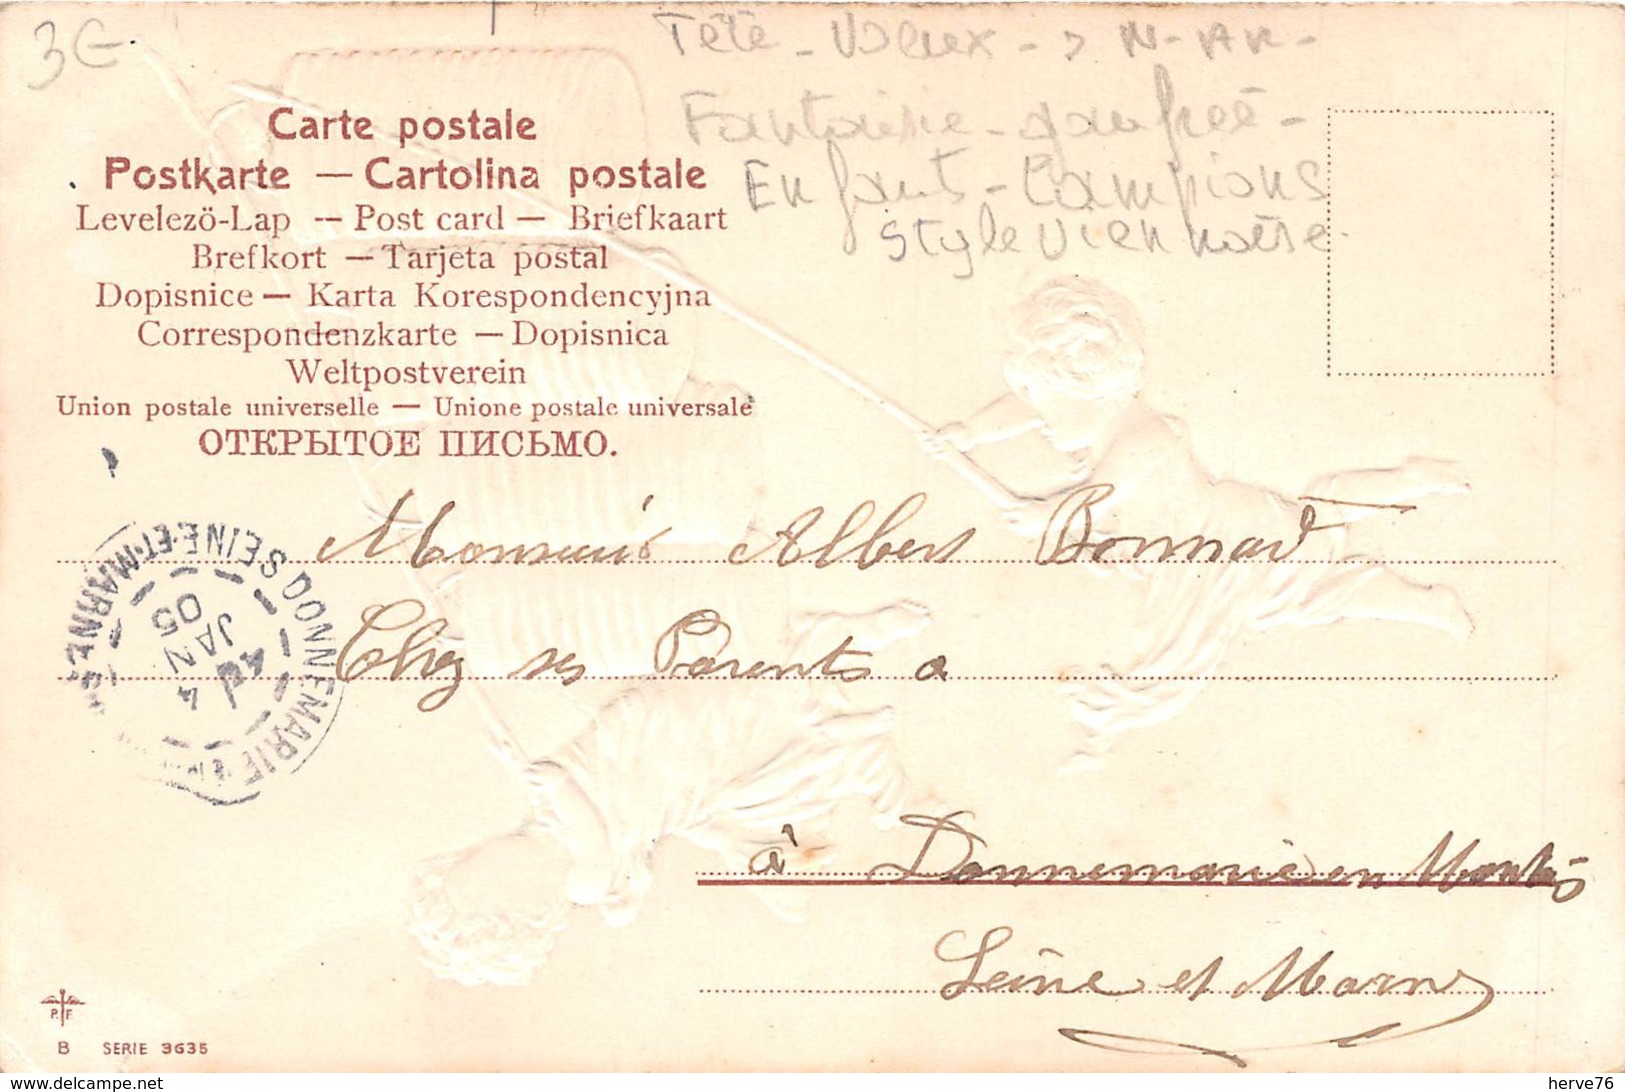 3€
Fête - Voeux - > N - AN -
Fantaisie - gaufrée -
Enfants - Lampions
style viennoise -
Carte postale
Postkarte — Cartolina postale
Levelezö-Lap — Post card — Briefkaart
Brefkort — Tarjeta postal
Dopisnice — Karta Korespondencyjna
Correspondenzkarte — Dopisnica
Weltpostverein
Union postale universelle — Unione postale universale
ОТКРЫТОЕ ПИСЬМО.
DONNEMARIE SEINE-ET-MARNE
4 JANV 05
Monsieur Albert Bonnard
Chez ses Parents a
à Donnemarie en Montois
Seine et Marne
P. F.
B SERIE 3635
www.delcampe.net
herve76